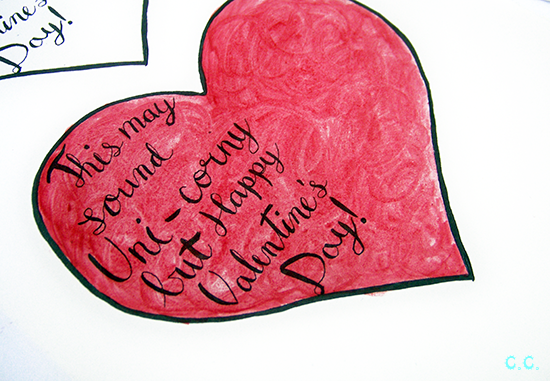 ine's
Day!
This may
sound
Uni-corny
but Happy
Valentine's
Day!
C.C.